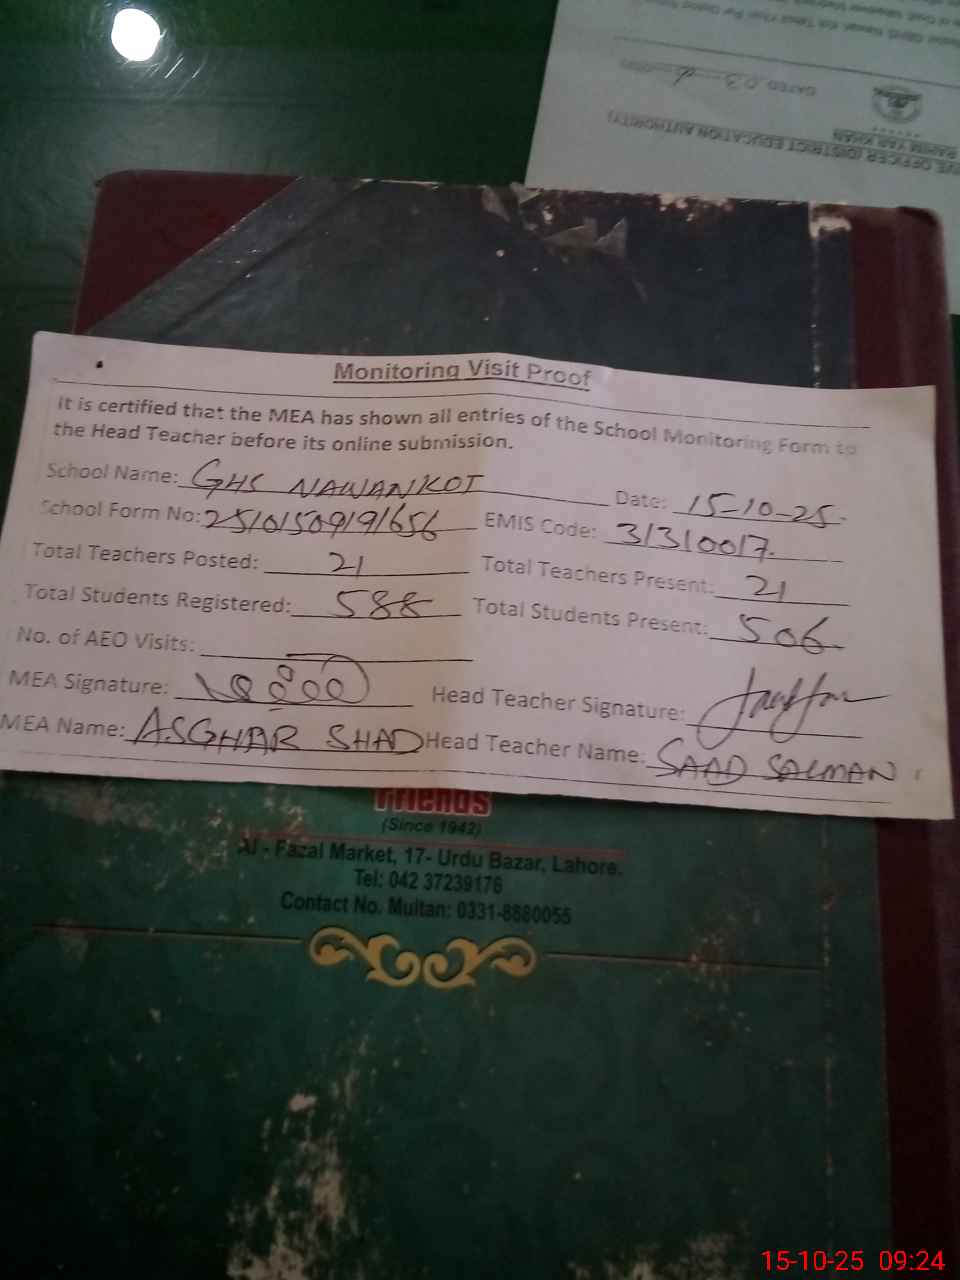 DATED 03
RAHIM YAR KHAN
VE OFFICER (DISTRICT EDUCATION AUTHORITY)
Monitoring Visit Proof
It is certified that the MEA has shown all entries of the School Monitoring Form to
the Head Teacher before its online submission.
School Name: GHS NAWANKOT Date: 15-10-25
School Form No: 25101509191656 EMIS Code: 31310017
Total Teachers Posted: 21 Total Teachers Present: 21
Total Students Registered: 588 Total Students Present: 506
No. of AEO Visits:
MEA Signature: Head Teacher Signature:
MEA Name: ASGHAR SHAD Head Teacher Name: SAAD SALMAN
Friends
(Since 1942)
Al - Fazal Market, 17- Urdu Bazar, Lahore.
Tel: 042 37239176
Contact No. Multan: 0331-8680055
15-10-25 09:24